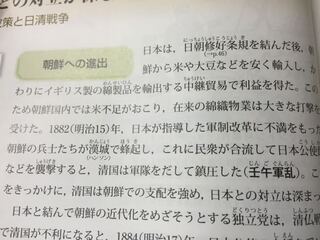 との対立
政策と日清戦争
朝鮮への進出
日本は，日朝修好条規を結んだ後，朝
(→p.46)
鮮から米や大豆などを安く輸入し，か
わりにイギリス製の綿製品を輸出する中継貿易で利益を得た。この
ため朝鮮国内では米不足がおこり，在来の綿織物業は大きな打撃を
受けた。1882(明治15)年，日本が指導した軍制改革に不満をもった
朝鮮の兵士たちが漢城で蜂起し，これに民衆が合流して日本公使館
(ハンソン)
などを襲撃すると，清国は軍隊をだして鎮圧した(壬午軍乱)。
をきっかけに，清国は朝鮮での支配を強め，日本との対立は深まっ
日本と結んで朝鮮の近代化をめざそうとする独立党は，清仏戦
で清国が不利になると，1884(明治17)年，日本